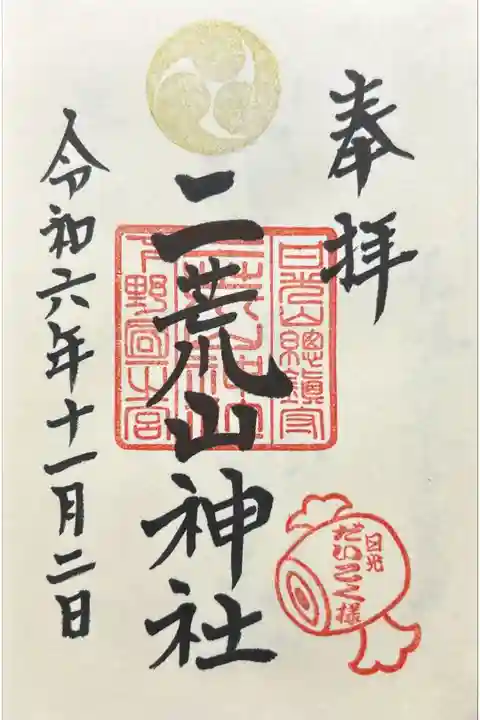 奉拝
日光山總鎮守
二荒山神社
下野国一之宮
日光
だいこく様
令和六年十一月二日